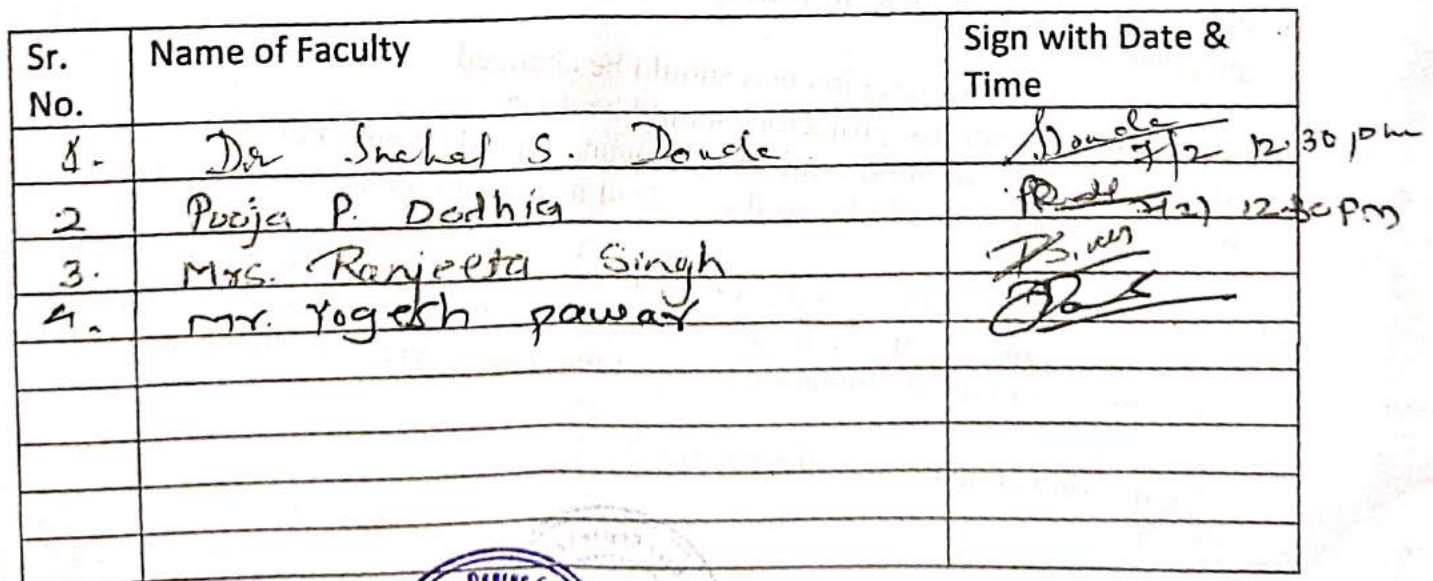 Sr. No. Name of Faculty Sign with Date & Time
1. Dr Snehal S. Donde Donde 7/2 12.30 pm
2 Pooja P. Dodhia 12.30 PM
3. Mrs. Ranjeeta Singh
4. Mr. Yogesh pawar